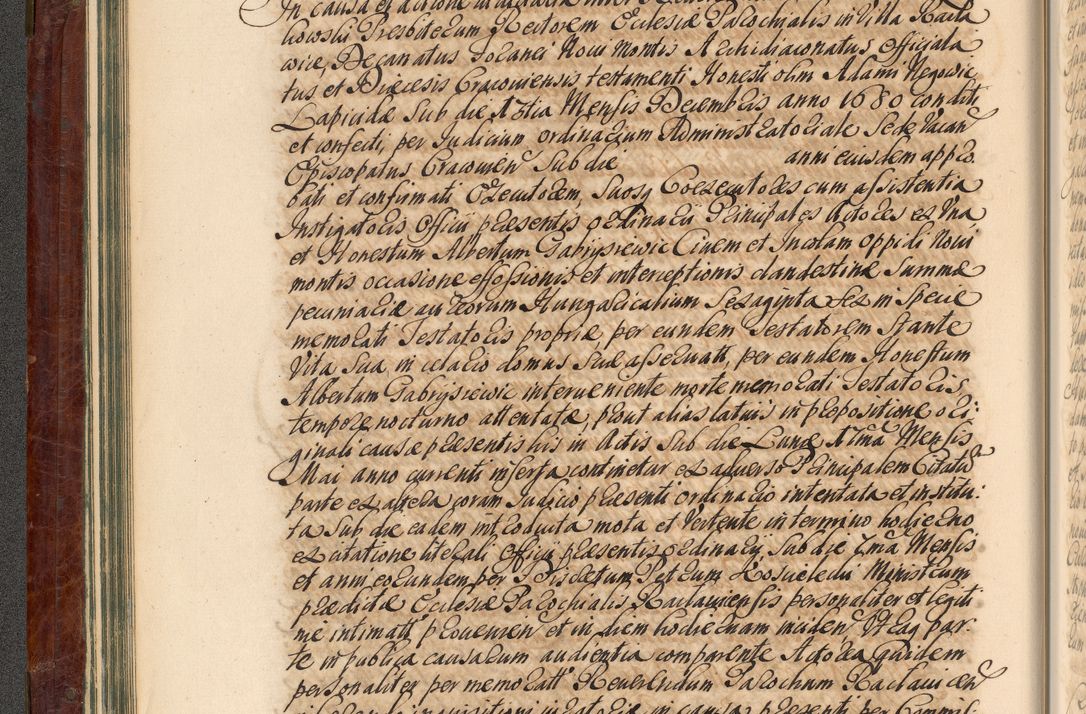 In causa et actione
kowski Presbiterum Rectorem Ecclesiæ Parochialis in Villa Racła
wice, Decanatus Foranei Novi Montis Archidiaconatus Officiala
tus et Diæcesis Cracoviensis testamenti Honesti olim Adami Negowic
Lapicidæ Sub die Mensis Decembris anno 1680 conditi
et confecti, per Judicium ordinarium Administratoriale Sede Vacan
Episcopatus Cracovien Sub die anni eiusdem appro
bati et confirmati Exœcutorem, Suosq Coexecutores cum assistentia
Instigatoris Officii præsentis ordinarii Principales Actores ex Una
et Honestum Albertum Gabrysiewic Civem et Incolam oppidi Novi
montis occasione effossionis et interceptionis clandestinæ Summæ
pecuniariæ aureorum Hungaricalium Sexaginta Sex in Specie
memorati Testatoris propriæ, per eundem Testatorem Stante
Vita Sua, in domus Suæ asservati, per eundem Honestum
Albertum Gabrysiewic interveniente morte memorati Testatoris
tempore nocturno attentatæ, prout alias latius in propositione ori
ginali causæ præsentis his in Actis Sub die Lunæ Mensis
Mai anno currenti inserta continetur ex adverso Principalem Citatū
parte ex altera coram Judicio præsenti ordinario intentata et institu:
ta Sub die eadem introducta mota et Vertente in termino hodierno
ex citatione literali Officii præsentis ordinarij Sub die 7ma Mensis
et anni eorundem per Discretum Petrum Ministrum
prædictæ Ecclesiæ Parochialis Raclaviensis personaliter et legiti
me intimatt provenien et in diem hodiernam inciden Itaq par:
te in publica causarum audientia comparente Actorea quidem
personaliter per memoratt Reverendum Parochum Raclavicen